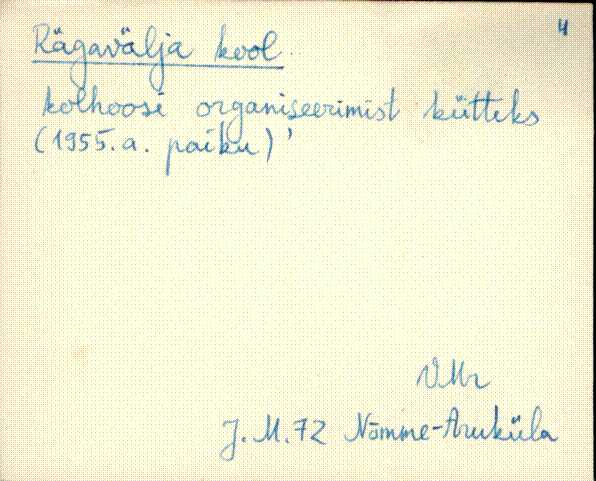 4
Rägavälja kool
kolhoosi organiseerimist kütteks
(1955.a. paiku)'
VMr
J.M.72 Nõmme-Aruküla